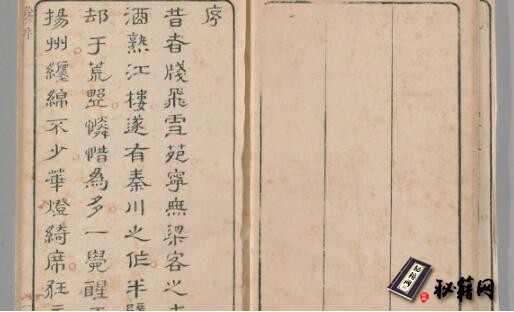 序
昔者牋飛雪苑寧無梁客之
酒熟江樓遂有秦川之作半
却于荒墅憐惜為多一覺醒
揚州纏綿不少華燈綺席狂
秘籍网